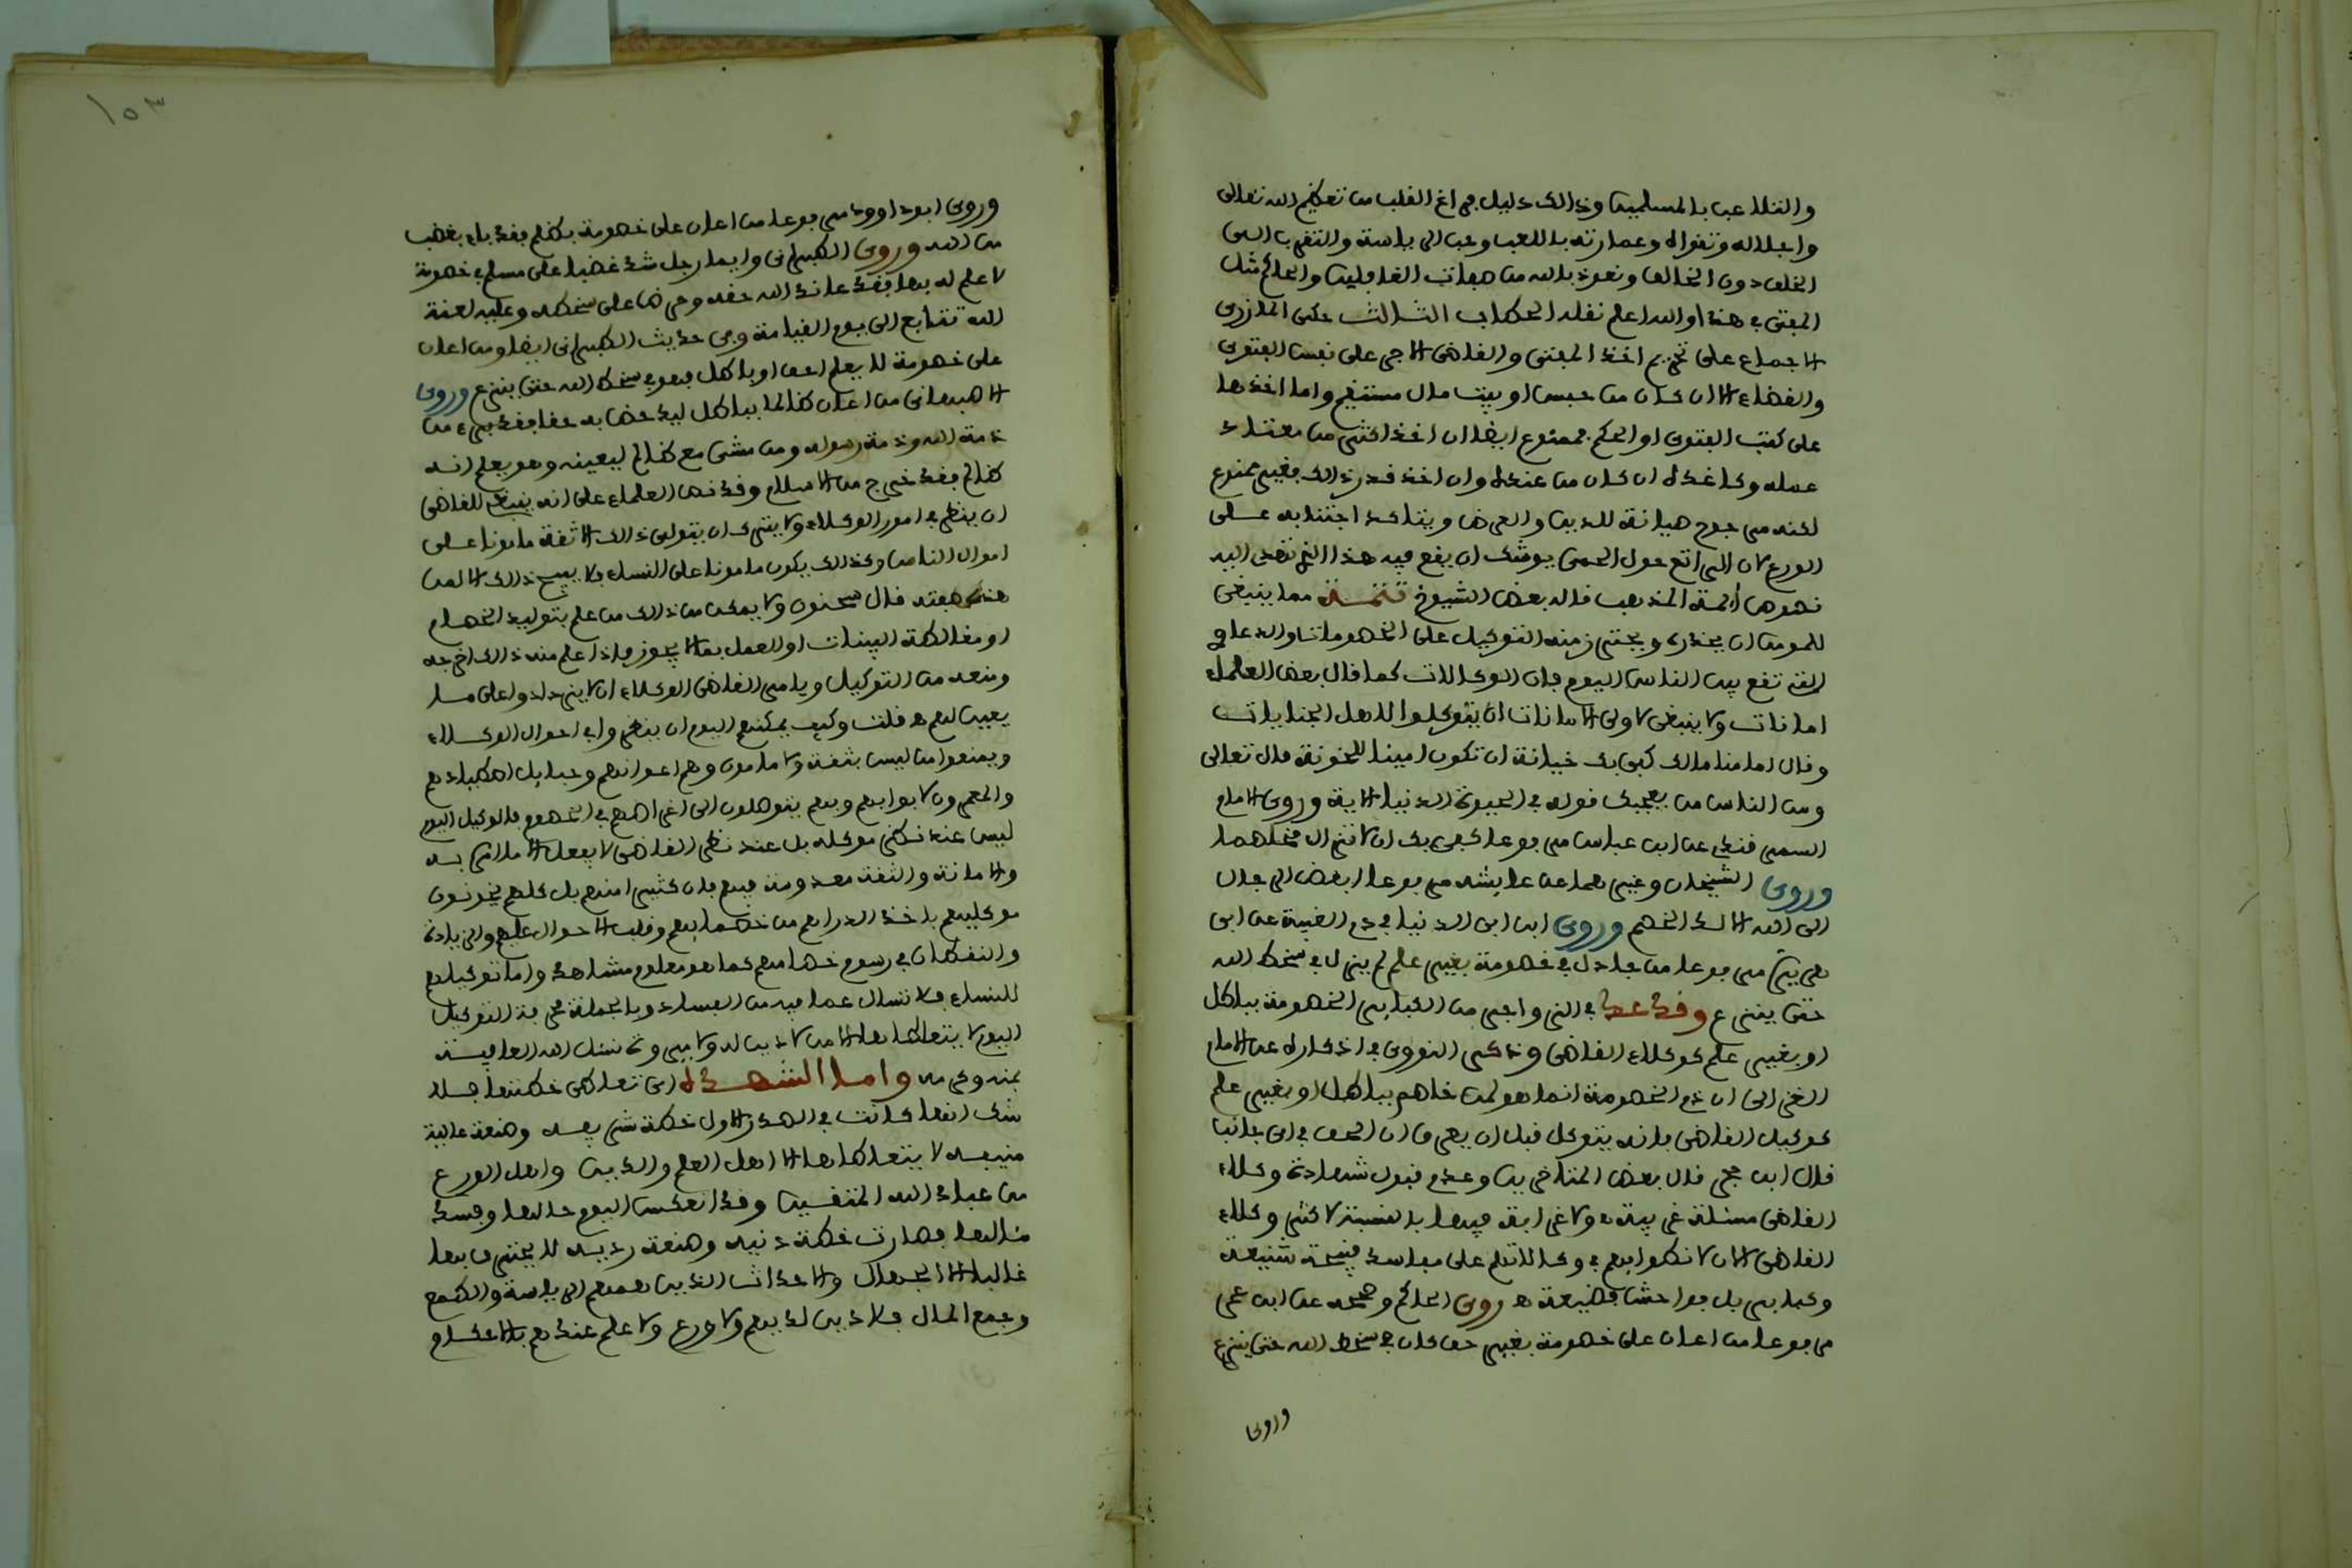 والتلاعب بالمسلمين وذالك دليل فراغ القلب من تعظيم الله تعالى
واجلاله وتقواه وعمارته باللعب وحب الرياسة والتقرب الى
الخلق دون الخالق ونعوذ بالله من صفات الغافلين والحاكم مثل
المفتي في هذا والله اعلم نقله الحطاب الثالث حكى المازري
الاجماع على تحريم اخذ المفتي والقاضي الاجر على نفس الفتوى
والقضاء الا ان كان من حبس او بيت مال مستقيم واما اخذها
على كتب الفتوى او الحكم فممنوع ايضا ان اخذ اكثر من معتاد
عمله وكاغده ان كان من عنده وان اخذ قدر ذالك فغير ممنوع
لكنه مرجوح صيانة للدين والعرض ويتاكد اجتنابه على
الورع لان الراتع حول الحمى يوشك ان يقع فيه هذا الذي تقضى اليه
نصوص أئمة المذهب قاله بعض الشيوخ تتمة مما ينبغي
للمومن ان يحذره ويحترز منه التوكيل على الخصومات والدعاوي
التي تقع بين الناس اليوم فان الوكالات كما قال بعض العلماء
امانات ولا ينبغي لاولى الامانات ان يتوكلوا لاهل الجنايات
وقال امامنا مالك كفى بك خيانة ان تكون امينا للخونة قال تعالى
ومن الناس من يعجبك قوله في الحيوة الدنيا الاية وروى الامام
السمرقندي عن ابن عباس مرفوعا كفى بك اثما ان لا تزال مخاصما
وروى الشيخان وغيرهما عن عايشة مرفوعا ابغض الرجال
الى الله الالد الخصم وروى ابن ابي الدنيا في ذم الغيبة عن ابي
هريرة مرفوعا من جادل في خصومة بغير علم لم يزل في سخط الله
حتى ينزع وقد عد في الزواجر من الكباير الخصومة بباطل
او بغير علم كوكلاء القاضي وذكر النووي في اذكاره عن الامام
الغزالي ان ذم الخصومة انما هو لمن خاصم بباطل او بغير علم
كوكيل القاضي فانه يتوكل قبل ان يعرف ان الحق في اي جانب
قال ابن حجر قال بعض المتاخرين وعدم قبول شهادة وكلاء
القاضي مسئلة غريبة ولا غرابة فيها بالنسبة لاكثر وكلاء
القاضي الان لانطوايهم في وكالاتهم على مفاسد قبيحة شنيعة
وكباير بل فواحش فضيعة ه روى الحاكم وصححه عن ابن عمر
مرفوعا من اعان على خصومة بغير حق كان في سخط الله حتى ينزع
وروى
١٥٣
وروى ابو داوود مرفوعا من اعان على خصومة بظلم فقد باء بغضب
من الله وروى الطبراني وايما رجل شد غضبا على مسلم في خصومة
لا علم له بها فقد عاند الله حقه وحرص على سخطه وعليه لعنة
الله تتابع الى يوم القيامة وفي حديث الطبراني ايضا ومن اعان
على خصومة لا يعلم احق او باطل فهو في سخط الله حتى ينزع وروى
الاصبهاني من اعان ظالما بباطل ليدحض به حقا فقد برء من
ذمة الله وذمة رسوله ومن مشى مع ظالم ليعينه وهو يعلم انه
ظالم فقد خرج من الاسلام وقد نص العلماء على انه ينبغي للقاضي
ان ينظر في امور الوكلاء ولا يترك ان يتولى ذالك الا ثقة مامونا على
اموال الناس وكذالك يكون مامونا على النساء ولا يبيح ذالك الا لمن
هذه صفته قال سحنون ولا يمكن من ذالك من علم بتوليد الخصام
او مغالطة البينات او العمل بما لا يجوز فاذا علم منه ذالك اخرجه
ومنعه من التوكيل ويامر القاضي الوكلاء ان لا يزدادوا على ما
يجب لهم ه قلت وكيف يمكنهم اليوم ان ينظروا في احوال الوكلاء
ويمنعوا من ليس بثقة ولا مامون وهم اعوانهم وحبايل اصطيادهم
والمعمرون لابوابهم وبهم يتوصلون الى اغراضهم في الخصوم فالوكيل اليوم
ليس عنده نظر موكله بل عنده نظر القاضي لا يفعل الا ما امر به
والامانة والثقة معدومة فيهم فان كثيرا منهم بل كلهم يخونون
موكليهم باخذ الدراهم من خصمايهم وقلب الاحوال عليهم والزيادة
والنقصان في رسوم خصامهم كما هو معلوم مشاهد واما توكيلهم
للنساء فلا تسال عما فيه من الفساد وبالجملة فحرفة التوكيل
اليوم لا يتعاطاها الا من لا دين له ولا مروة نسئل الله العافية
بمنه وكرمه واما الشهدة اي تعاطى خطتها فلا
شك انها كانت في الصدر الاول خطة شريفه وصنعة عالية
منيفه لا يتعاطاها الا اهل العلم والدين واهل الورع
من عباد الله المتقين وقد انعكس اليوم حالها وفسد
مئالها فصارت خطة دنيه وصنعة رديه لا يحترف بها
غالبا الا الجهال والاحداث الذين همهم الرياسة والطمع
وجمع المال فلا دين لديهم ولا ورع ولا علم عندهم بالاحكام